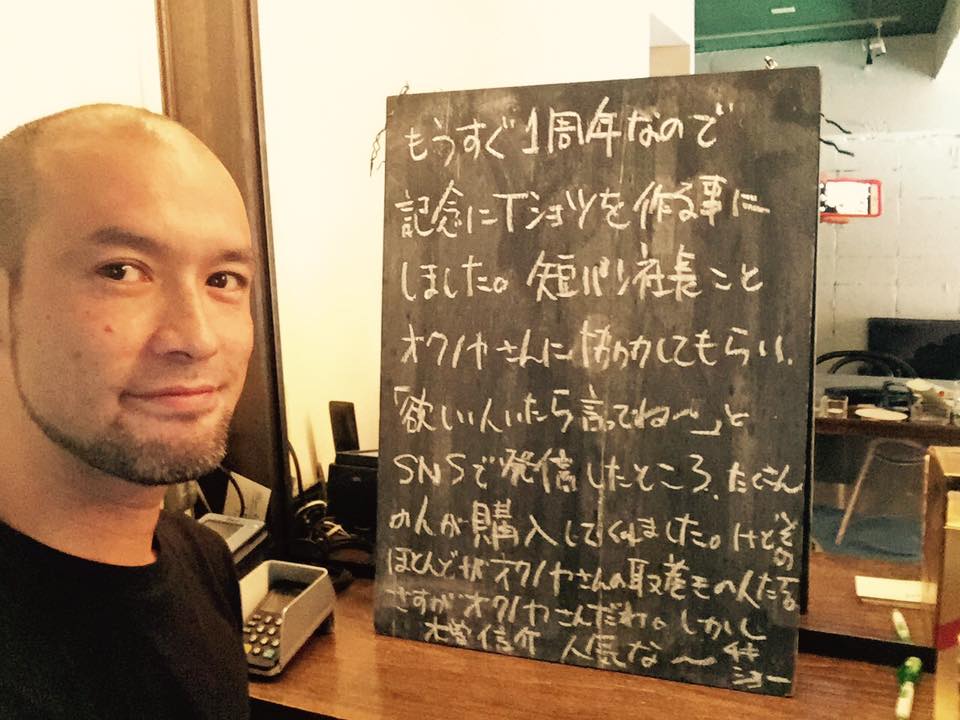 もうすぐ1周年なので
記念にTシャツを作る事に
しました。短パン社長こと
オクノヤさんに協力してもらい、
「欲しい人いたら言ってね〜」と
SNSで発信したところ、たくさん
の人が購入してくれました。けどその
ほとんどがオクノヤさんの取巻きの人たち
さすがオクノヤさんだわ。しかし
信介 人気な〜
ショー